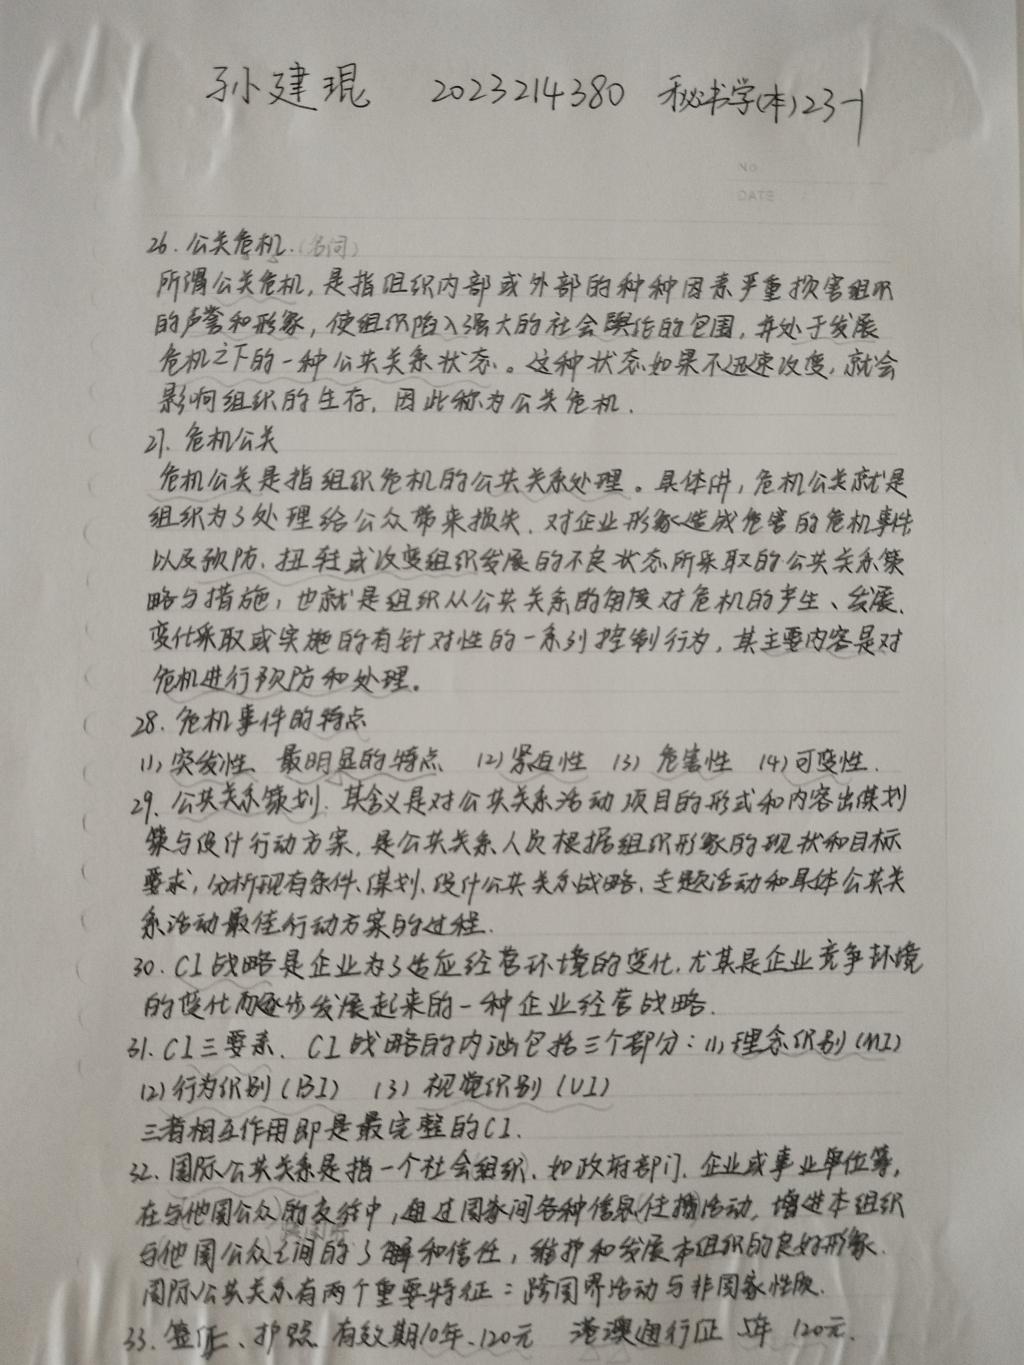 孙建琨 2023214380 秘书学(本)23-1
No
DATE
26. 公关危机.(名词)
所谓公关危机,是指组织内部或外部的种种因素严重损害组织
的声誉和形象,使组织陷入强大的社会舆论的包围,并处于发展
危机之下的一种公共关系状态。这种状态如果不迅速改变,就会
影响组织的生存,因此称为公关危机.
27. 危机公关
危机公关是指组织危机的公共关系处理。具体讲,危机公关就是
组织为了处理给公众带来损失、对企业形象造成危害的危机事件
以及预防、扭转或改变组织发展的不良状态所采取的公共关系策
略与措施,也就是组织从公共关系的角度对危机的产生、发展、
变化采取或实施的有针对性的一系列控制行为,其主要内容是对
危机进行预防和处理。
28. 危机事件的特点
(1) 突发性、最明显的特点 (2) 紧迫性 (3) 危害性 (4) 可变性.
29. 公共关系策划. 其含义是对公共关系活动项目的形式和内容出谋划
策与设计行动方案,是公共关系人员根据组织形象的现状和目标
要求,分析现有条件、谋划、设计公共关系战略、专题活动和具体公共关
系活动最佳行动方案的过程.
30. CI战略是企业为了适应经营环境的变化,尤其是企业竞争环境
的变化而逐步发展起来的一种企业经营战略.
31. CI三要素. CI战略的内涵包括三个部分:(1) 理念识别(MI)
(2) 行为识别(BI) (3) 视觉识别(VI)
三者相互作用即是最完整的CI.
32. 国际公共关系是指一个社会组织、如政府部门、企业或事业单位等,
在与他国公众的交往中,通过国家间各种信息传播活动,增进本组织
与他国公众之间的了解和信任,维护和发展本组织的良好形象.
国际公共关系有两个重要特征:跨国界活动与非国家性质.
33. 签证、护照 有效期10年、120元 港澳通行证 5年 120元.